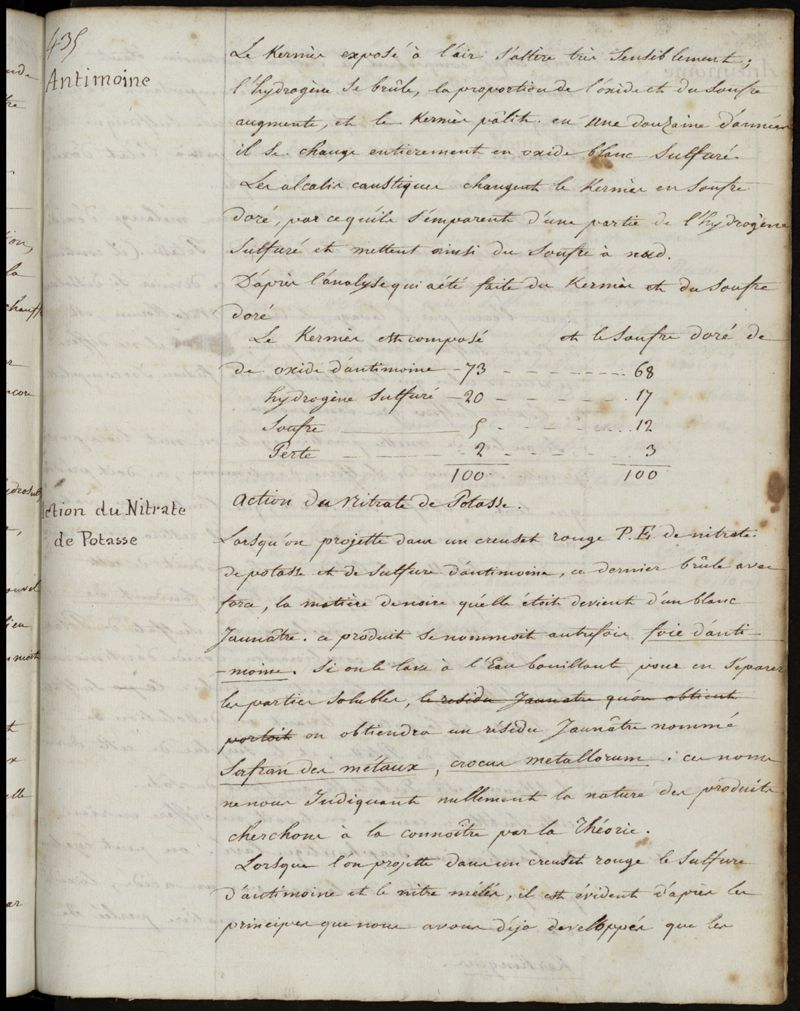 435
Antimoine
Le Kermès exposé à l'air s'altère très sensiblement;
l'hydrogène se brûle, la proportion de l'oxide et du soufre
augmente, et le Kermès pâlit. en une douzaine d'années
il se change entierement en oxide blanc sulfuré.
Les alcalis caustiques changent le Kermès en soufre
doré, par ce qu'ils s'emparent d'une partie de l'hydrogène
sulfuré et mettent ainsi du soufre à nud.
D'après l'analyse qui a été faite du Kermès et du soufre
doré
Le Kermès est composé et le soufre doré de
de oxide d'antimoine - 73 - - - - - - - 68
hydrogène sulfuré - 20 - - - - - - - 17
Soufre ——— 5 - - - - - - - 12
Perte - - - 2 - - - - - - - 3
100 100
Action du Nitrate
de Potasse
Action du Nitrate de Potasse.
Lorsqu'on projette dans un creuset rouge P.E. de nitrate
de potasse et de sulfure d'antimoine, ce dernier brûle avec
force, la matière de noire qu'elle étoit devient d'un blanc
Jaunâtre. ce produit se nommoit autrefois foie d'anti-
-moine. Si on le lave à l'Eau bouillant pour en séparer
les parties solubles, le residu Jaunatre qu'on obtient
portoit on obtiendra un résidu Jaunâtre nommé
Safran des métaux, crocus metallorum : ces noms
ne nous Indiquant nullement la nature des produits
cherchons à la connoître par la théorie.
Lorsque l'on projette dans un creuset rouge le sulfure
d'antimoine et le nitre mêlés, il est évident d'après les
principes que nous avons déja développés que les